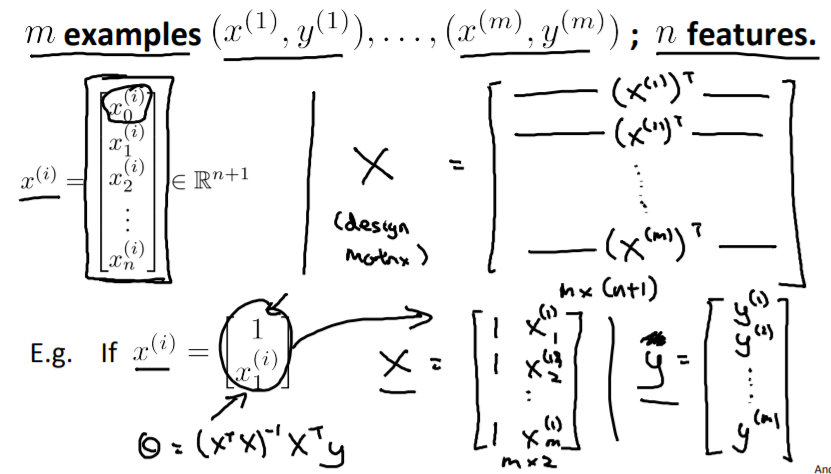 m examples (x^{(1)}, y^{(1)}), . . . , (x^{(m)}, y^{(m)}) ; n features.
x^{(i)} = [x_0^{(i)} x_1^{(i)} x_2^{(i)} ⋮ x_n^{(i)}] ∈ ℝ^{n+1}
X = [— (x^{(1)})^T — — (x^{(2)})^T — ⋮ — (x^{(m)})^T —]
(design matrix)
m x (n+1)
E.g. If x^{(i)} = [1 x_1^{(i)}]
X = [1 x_1^{(1)} 1 x_2^{(1)} ⋮ 1 x_m^{(1)}]
m x 2
y = [y^{(1)} y^{(2)} ⋮ y^{(m)}]
Θ = (X^T X)^{-1} X^T y